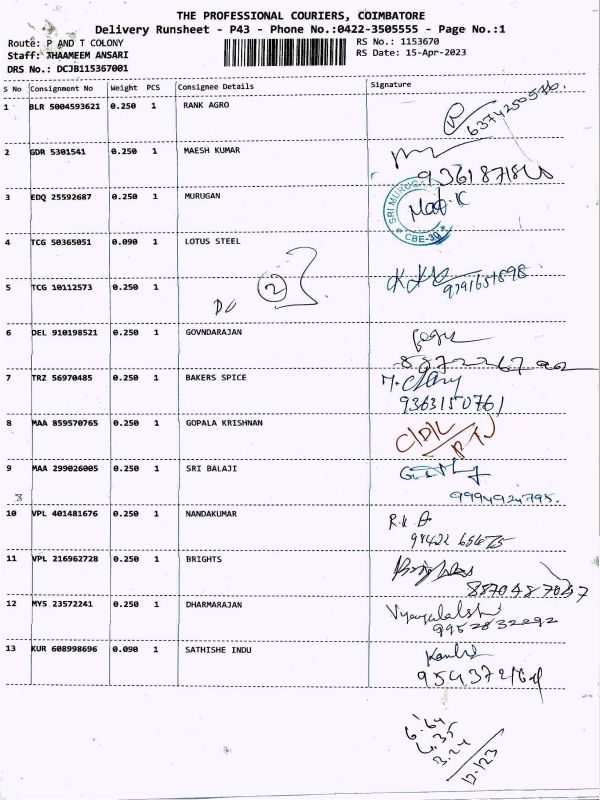 THE PROFESSIONAL COURIERS, COIMBATORE
Delivery Runsheet - P43 - Phone No.:0422-3505555 - Page No.:1
Route: P AND T COLONY
RS No.: 1153670
Staff: THAAMEEM ANSARI
RS Date: 15-Apr-2023
DRS No.: DCJB115367001
S No Consignment No Weight PCS Consignee Details Signature
1 BLR 5004593621 0.250 1 RANK AGRO
2 GDR 5301541 0.250 1 MAESH KUMAR
3 EDQ 25592687 0.250 1 MURUGAN
SRI MURUGA
CBE-30
4 TCG 50365051 0.090 1 LOTUS STEEL
5 TCG 10112573 0.250 1
2
9791651898
6 DEL 910198521 0.250 1 GOVNDARAJAN
7 TRZ 56970485 0.250 1 BAKERS SPICE
9363150761
8 MAA 859570765 0.250 1 GOPALA KRISHNAN
9 MAA 299026005 0.250 1 SRI BALAJI
9994924795.
10 VPL 401481676 0.250 1 NANDAKUMAR
11 VPL 216962728 0.250 1 BRIGHTS
8870487047
12 MYS 23572241 0.250 1 DHARMARAJAN
9952832292
13 KUR 608998696 0.090 1 SATHISHE INDU